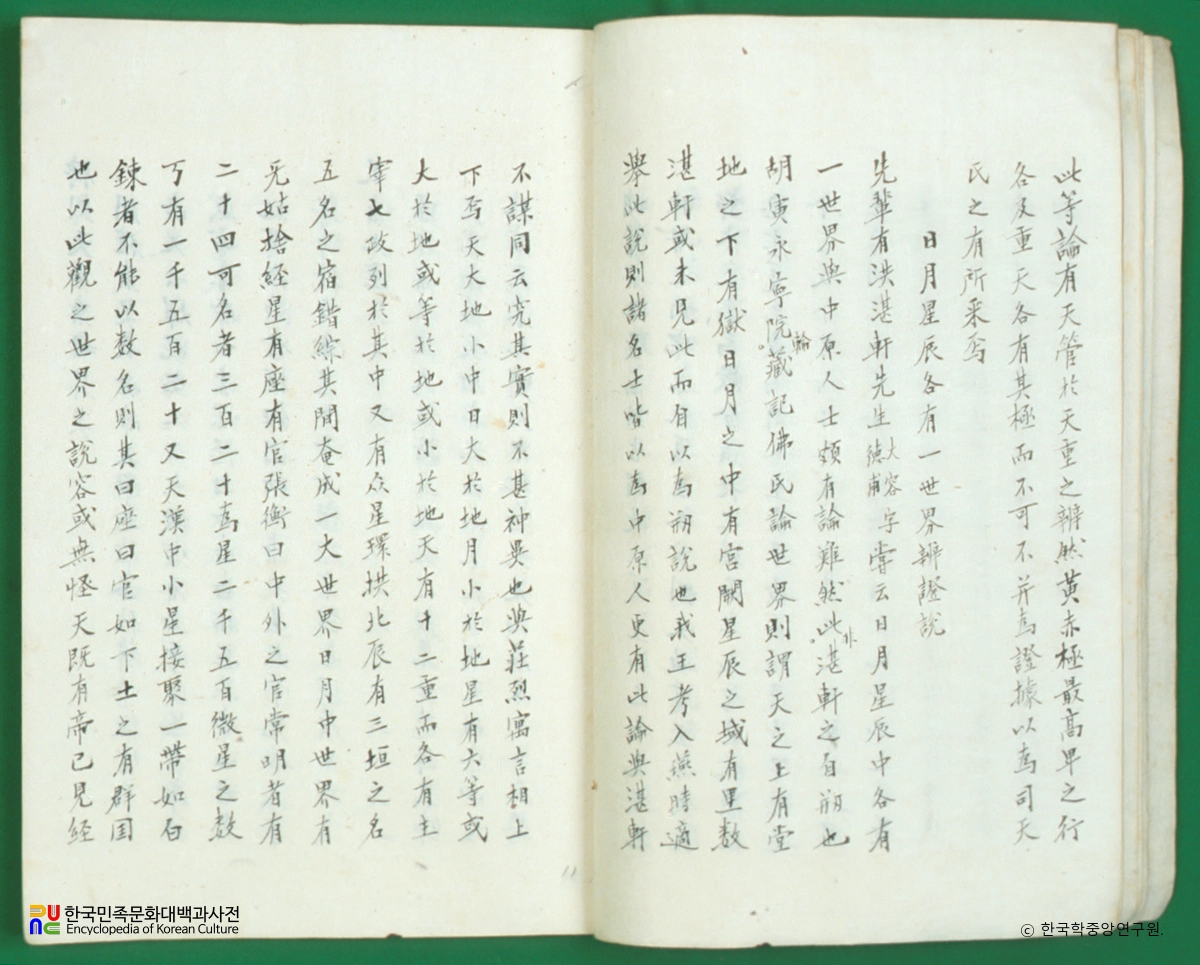 此等論有天管於天重之辨然黃赤極最高卑之行
各及重天各有其極而不可不幷爲證據以爲司天
氏之有所采焉
日月星辰各有一世界辨證說
先輩有洪湛軒先生大容德甫字嘗云日月星辰中各有
一世界與中原人士頗有論難然此非湛軒之自刱也
胡寅永寧院輪藏記佛氏論世界則謂天之上有堂
地之下有獄日月之中有宮闕星辰之域有里數
湛軒或未見此而自以爲刱說也我王考入燕時適
擧此說則諸名士皆以爲中原人更有此論與湛軒
不謀同云究其實則不甚神異也與莊烈寓言相上
下焉天大地小中日大於地月小於地星有六等或
大於地或等於地或小於地天有十二重而各有主
宰七政列於其中又有众星環拱北辰有三垣之名
五名之宿錯綜其間奄成一大世界日月中世界有
无姑捨經星有座有官張衡曰中外之官常明者有
二十四可名者三百二十爲星二千五百微星之數
万有一千五百二十又天漢中小星接聚一帶如白
鍊者不能以數名則其曰座曰官如下土之有群国
也以此觀之世界之說容或無怪天既有帝已見經
한국민족문화대백과사전
Encyclopedia of Korean Culture
ⓒ 한국학중앙연구원.